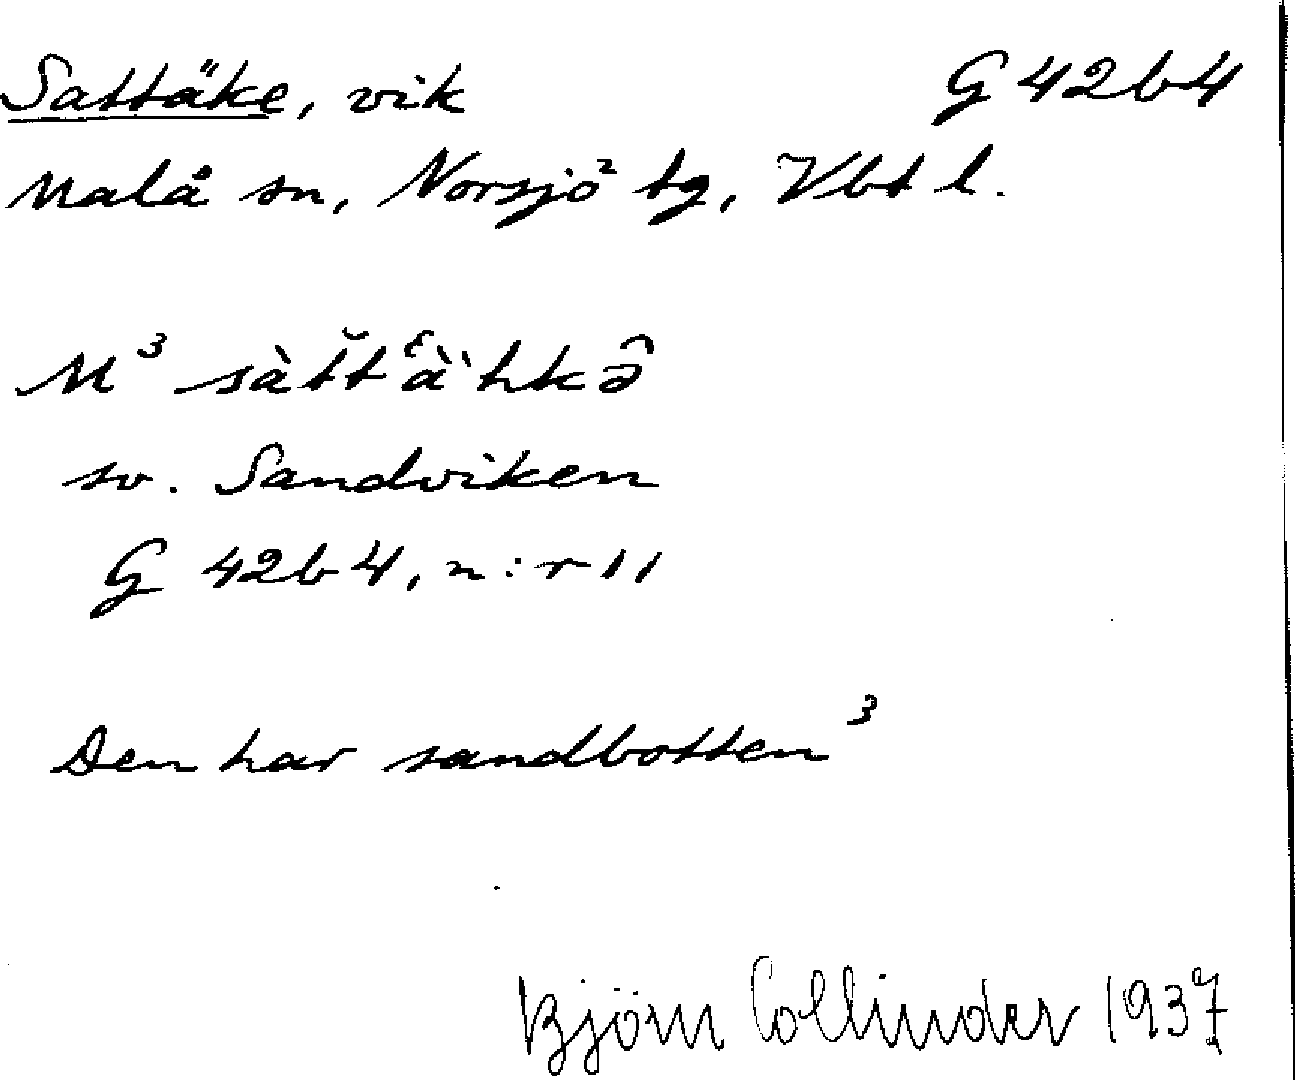 Sattäke, vik G 42b4
Malå sn, Norsjö tg, Vbt l.
M³ sàt̆tʿä̀ˋhkə̑
sv. Sandviken
G 42b4, n:r 11
Den har sandbotten³
Björn Collinder 1937